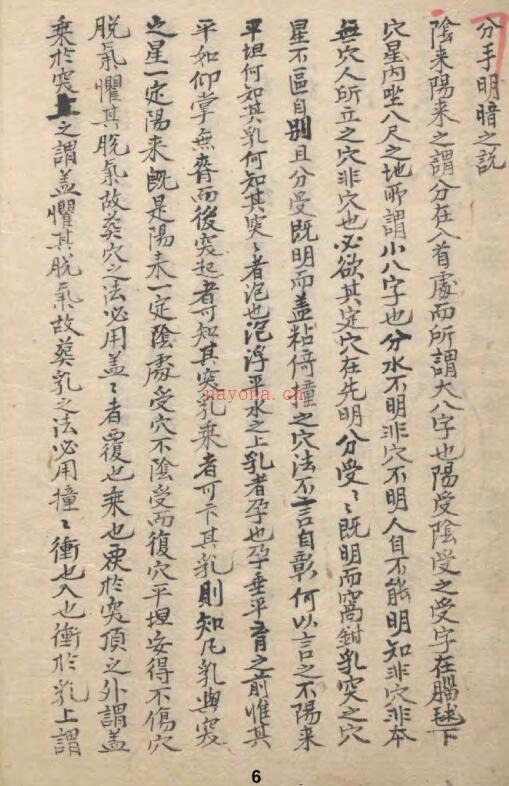 分手明暗之説
陰来陽来之謂分在入首處而所謂大八字也陽受陰受之受字在腦毬下
穴星内坐八尺之地所謂小八字也分水不明非穴不明人自不能明知非穴非本
無穴人所立之穴非穴也必欲其定穴在先明分受〻既明而窩鉗乳突之穴
星不區自别且分受既明而盖粘倚撞之穴法不言自彰何以言之不陽来
平坦何如其乳何知其突〻者泡也泡浮平水之上乳者孕也孕垂平育之前惟其
平如仰掌無脊而後突起者可知其突乳乘者可卞其乳則知凡乳與突
之星一定陽来既是陽来一定陰處受穴不陰受而復穴平坦安得不傷穴
脱氣懼其脱氣故葬穴之法必用盖〻者覆也乗也覆於突頂之外謂盖
乗於突上之謂盖懼其脱氣故葬乳之法必用撞〻衝也入也衝於乳上謂
nayona.cn
6